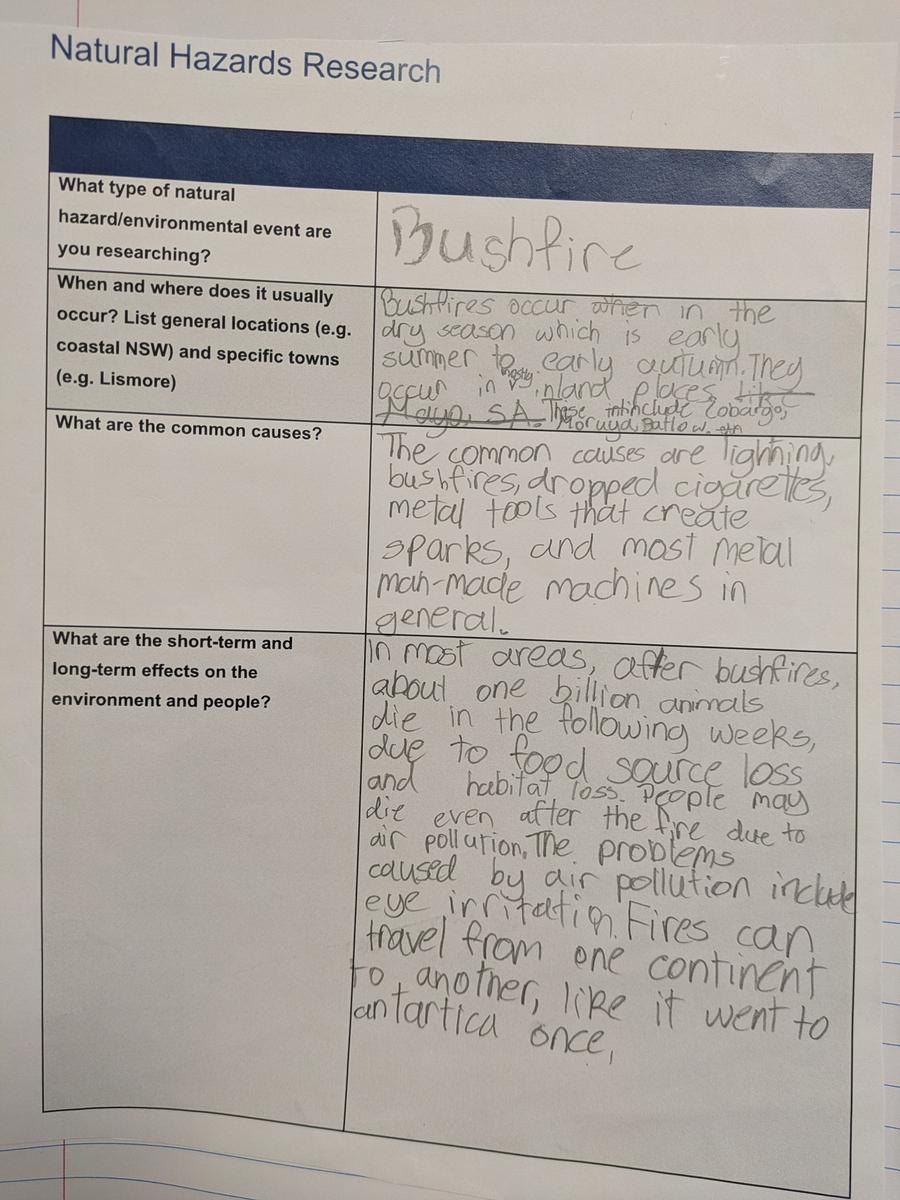 Natural Hazards Research
What type of natural
hazard/environmental event are
you researching?
Bushfire
When and where does it usually
occur? List general locations (e.g.
coastal NSW) and specific towns
(e.g. Lismore)
Bushfires occur when in the
dry season which is early
summer to early autumn. They
occur in mostly inland places like
Mayo, SA. These include Cobargo,
Moruya, Batlow.
What are the common causes?
The common causes are lighning,
bushfires, dropped cigarettes,
metal tools that create
sparks, and most metal
man-made machines in
general.
What are the short-term and
long-term effects on the
environment and people?
In most areas, after bushfires,
about one billion animals
die in the following weeks,
due to food source loss
and habitat loss. People may
die even after the fire due to
air pollution. The problems
caused by air pollution include
eye irritation. Fires can
travel from one continent
to another, like it went to
antartica once,